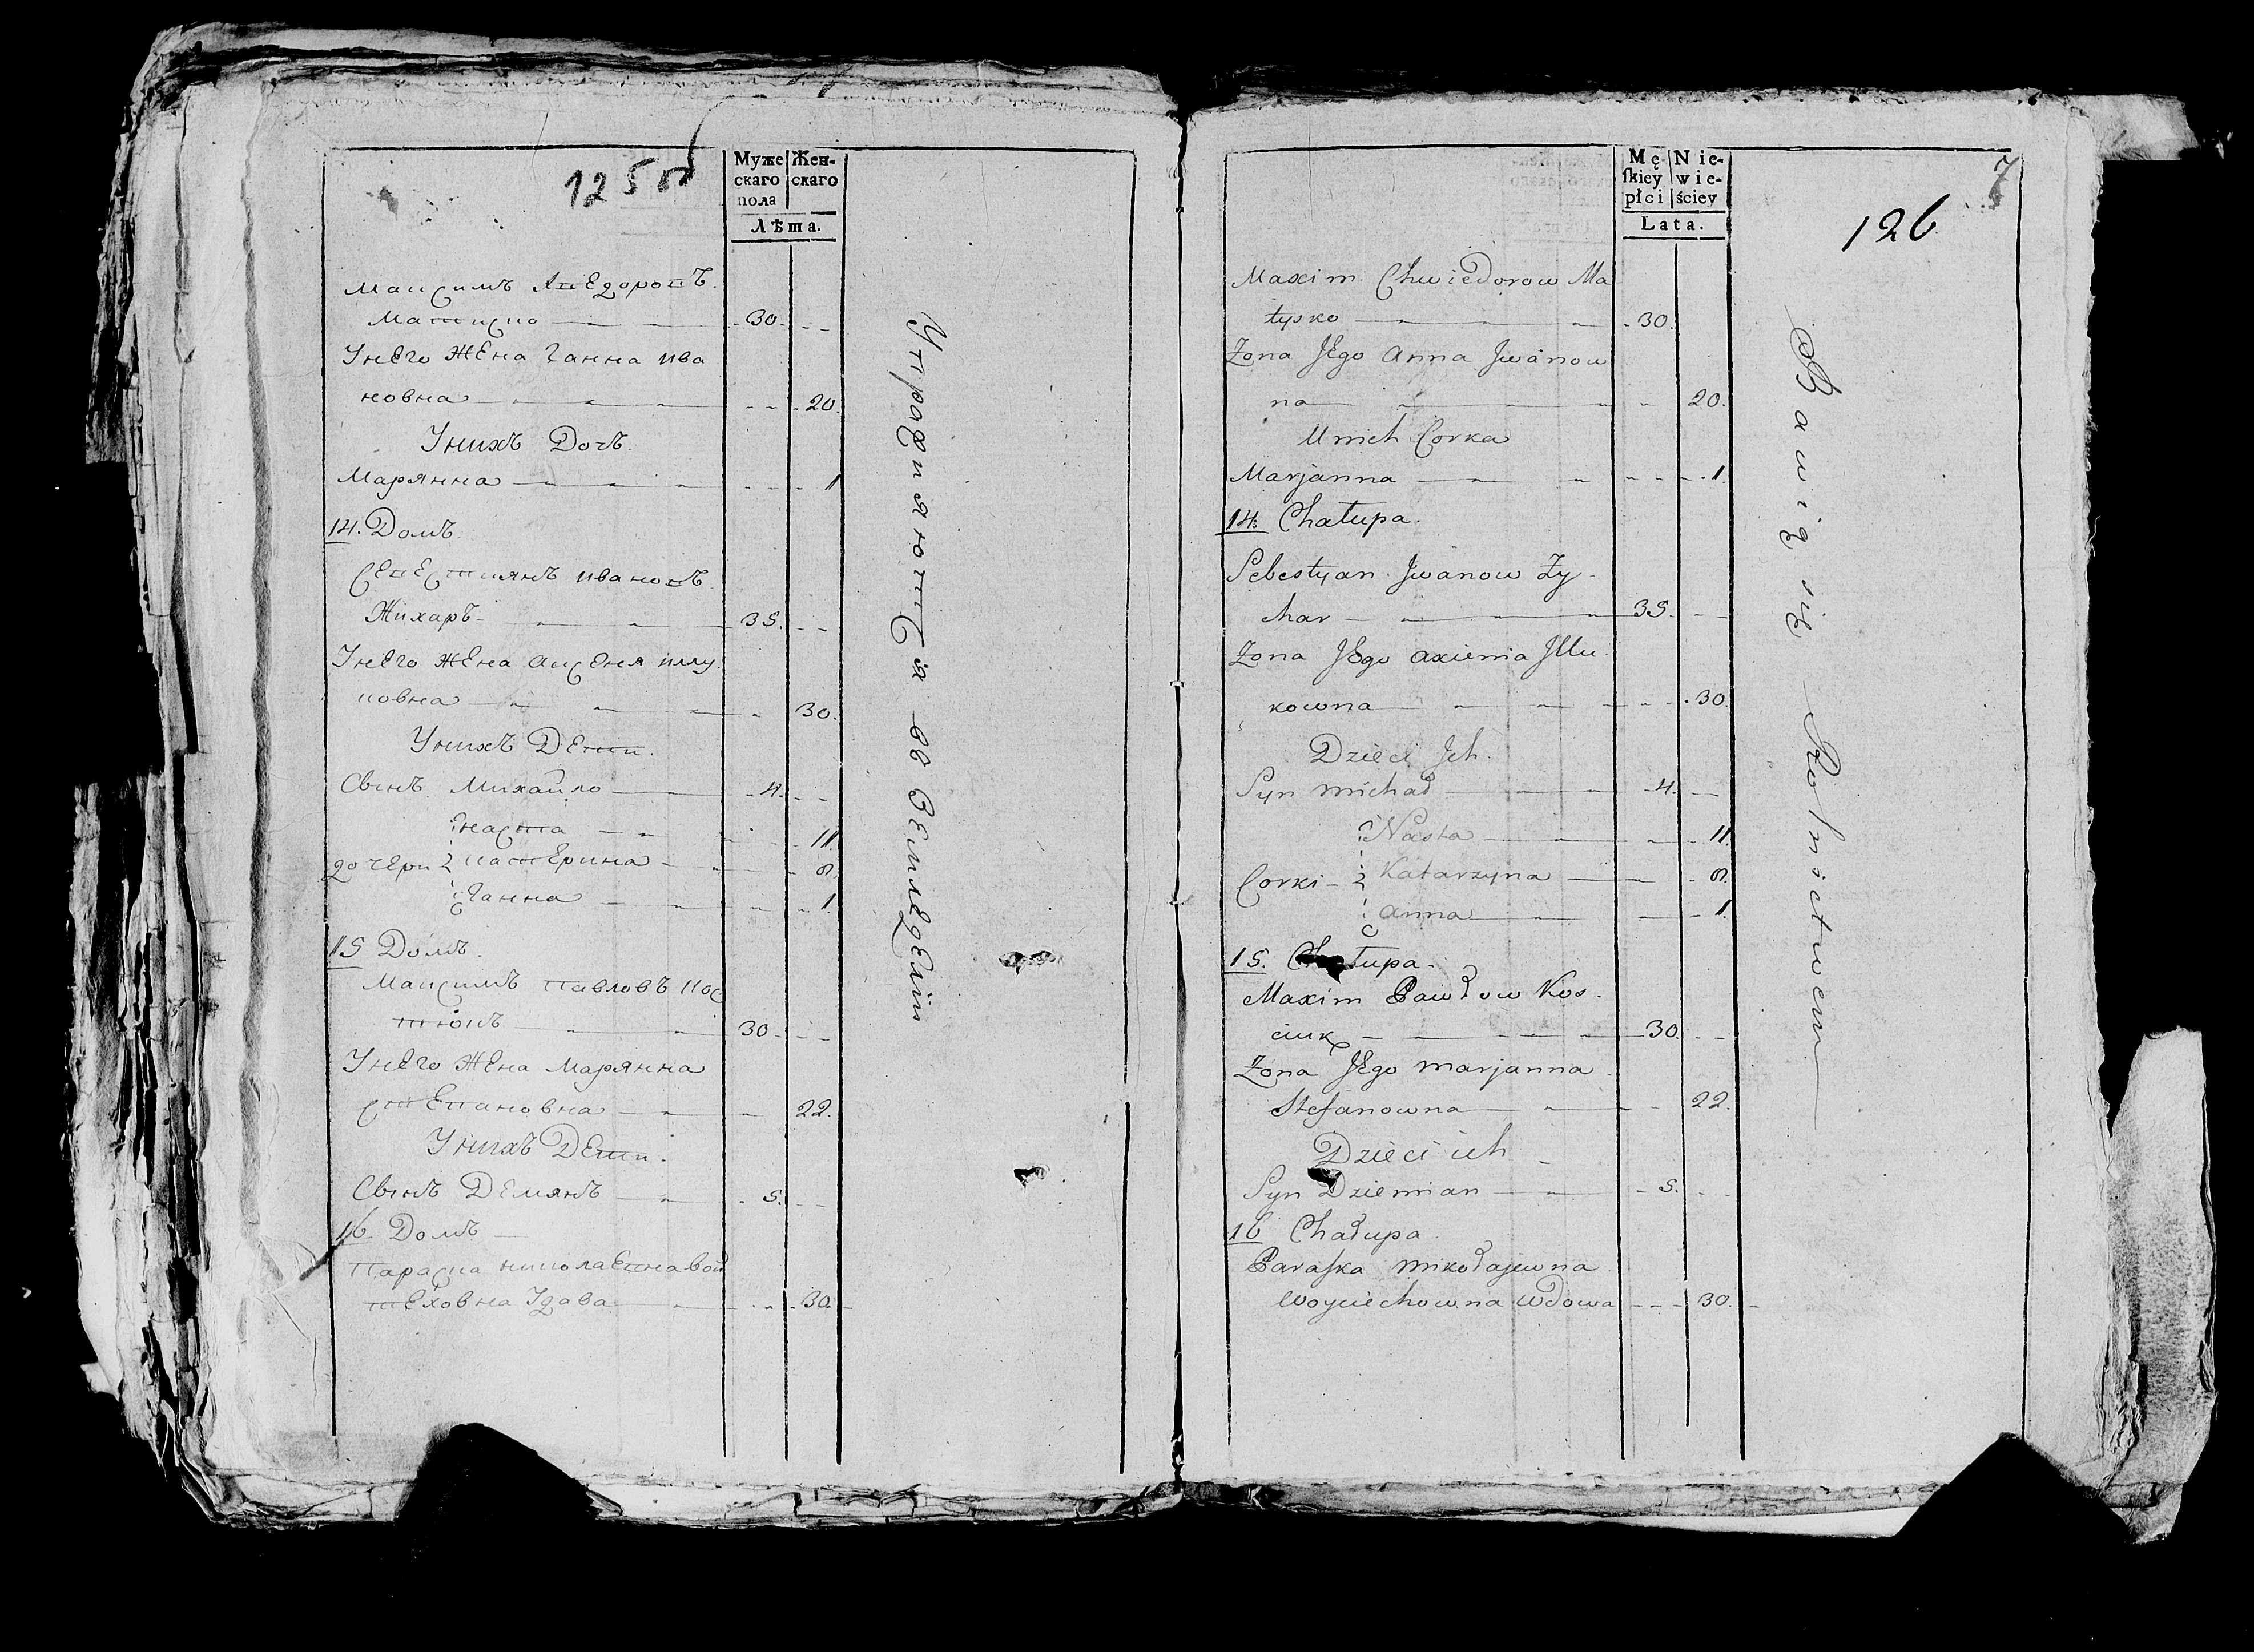 125
Муже
скаго
пола
Жен-
скаго
Лѣта.
Максимъ Хведоровъ
Матыско 30
Унего жена Ганна Ива
новна 20.
Унихъ Дочь.
Марянна 1
14. Домъ
Себестиянъ Ивановъ
Жихаръ 35.
Унего жена Аксеня Иллу
ковна 30.
Унихъ Дети.
Сынъ Михайло 4.
Наста 11.
дочери Катерина 8.
Ганна 1.
15 Домъ.
Максимъ Павловъ Кос
тюкъ 30
Унего жена Марянна
Степановна 22.
Унихъ Дети.
Сынъ Демянъ 5.
16 Домъ
Параска Николаевна Вой
теховна Удава 30.
Упражняются въ Земледелiи
7
126
Mę
ſkiey
płci
Nie-
wie-
ściey
Lata.
Maxim Chwiedorow Ma
tysko 30.
Żona Jego Anna Jwanow
na 20.
U nich Corka
Marjanna 1.
14. Chałupa.
Sebestyan Jwanow Ży-
char 35.
Żona Jego Axienia Jllu
kowna 30.
Dzieci Jch.
Syn Michał 4.
Nasta 11.
Corki Katarzyna 8.
Anna 1.
15. Chałupa.
Maxim Pawłow Kos
ciuk 30.
Żona Jego Marjanna
Stefanowna 22.
Dzieci ich
Syn Dziemian 5.
16 Chałupa
Paraſka Mikołajewna
Woyciechowna Wdowa 30.
Bawią się Rolnictwem